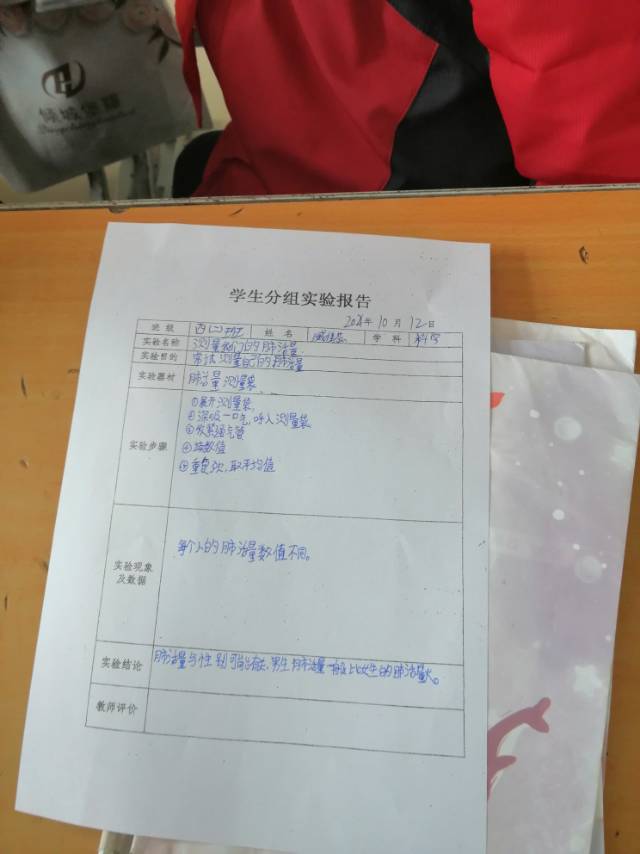 学生分组实验报告
2021年10月12日
班级 四(二)班 姓名 学科 科学
实验名称 测量我们的肺活量
实验目的 尝试测量自己的肺活量
实验器材 肺活量测量袋
实验步骤
①展开测量袋
②深吸一口气,呼入测量袋
④读数值
⑤重复3次,取平均值
实验现象及数据
每个人的肺活量数值不同。
实验结论 肺活量与性别可能存在,男生肺活量一般比女生的肺活量大。
教师评价